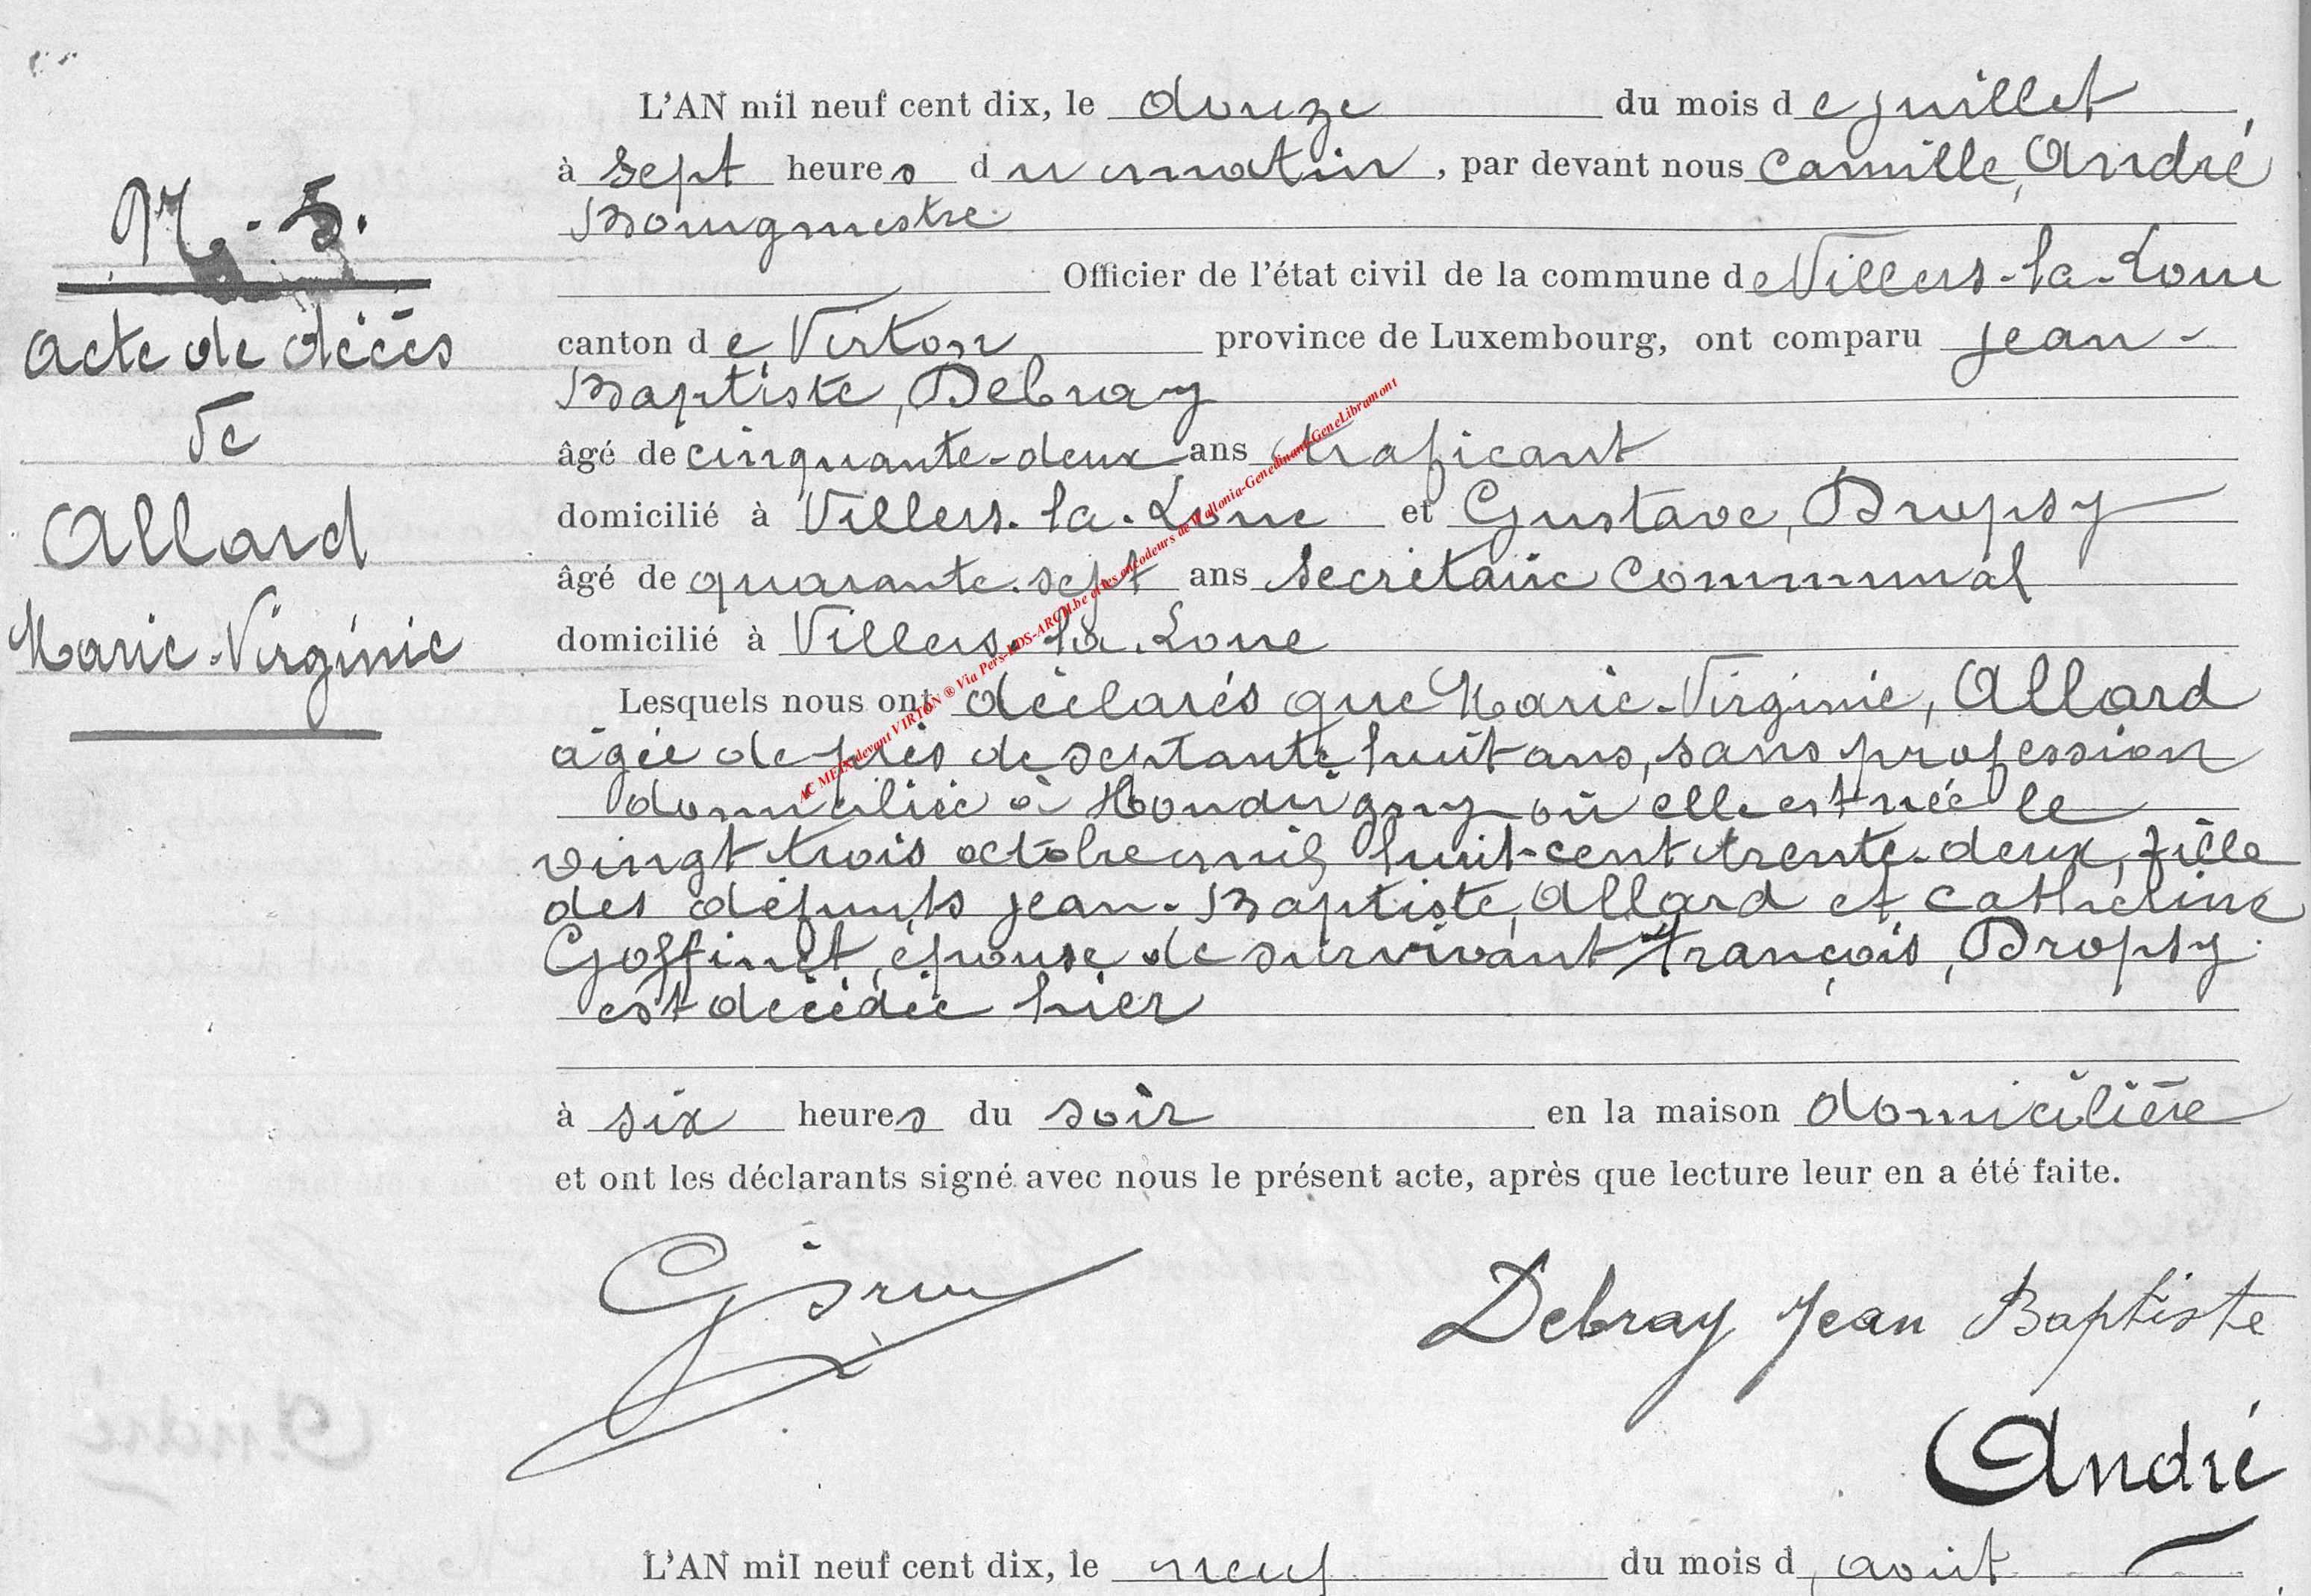 N. 5.
Acte de décès
de
Allard
Marie-Virginie
L'AN mil neuf cent dix, le douze du mois de juillet,
à sept heures du matin, par devant nous Camille, André
Bourgmestre
Officier de l'état civil de la commune de Villers-la-Loue
canton de Virton province de Luxembourg, ont comparu Jean-
Baptiste, Debray
âgé de cinquante-deux ans traficant
domicilié à Villers-la-Loue et Gustave, Dropsy
âgé de quarante-sept ans secrétaire communal
domicilié à Villers-la-Loue
Lesquels nous ont déclarés que Marie-Virginie, Allard
âgée de près de septante huit ans, sans profession
domiciliée à Houdrigny où elle est née le
vingt trois octobre mil huit-cent trente-deux, fille
des défunts Jean-Baptiste, Allard et Catherine
Goffinet, épouse de survivant François, Dropsy
est décédée hier
à six heures du soir en la maison domicilière
et ont les déclarants signé avec nous le présent acte, après que lecture leur en a été faite.
Debray Jean Baptiste
André
L'AN mil neuf cent dix, le neuf du mois d août
AC MEIX devant VIRTON ® Via Pers-LDS-ARCH.be et les encodeurs de Wallonia-Genedinant-GeneLibramont